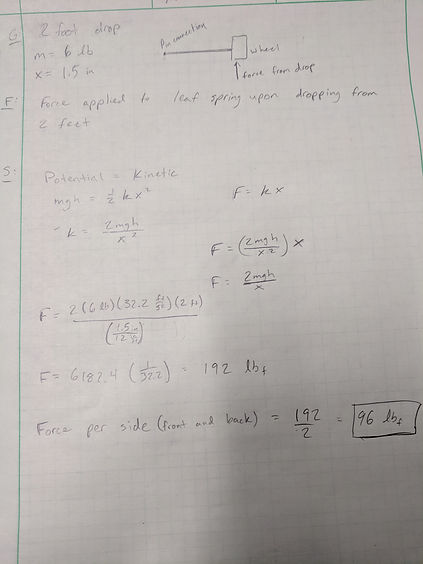 G: 2 foot drop
m = 6 lb
x = 1.5 in
Pin connection
wheel
force from drop
F: Force applied to leaf spring upon dropping from
2 feet
S:
Potential = Kinetic
mgh = 1/2 kx² F = kx
k = 2mgh/x²
F = (2mgh/x²) x
F = 2mgh/x
F = 2(6 lb)(32.2 ft/s²)(2 ft)/(1.5 in/12 in/ft)
F = 6182.4 (1/32.2) = 192 lbf
Force per side (front and back) = 192/2 = 96 lbf